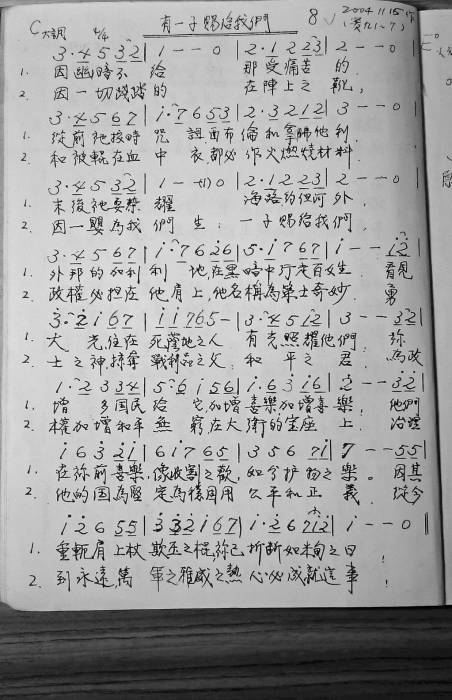 有一子賜給我們 8 √ 2004.11.15作
C大調 4/4 (賽九1~7)
3·4 5 32 | 1 - - 0 | 2·1 2 23 | 2 - - 0 |
1. 因幽暗不 給 那受痛苦 的
2. 因一切踐踏的 在陣上之 靴,
3·4 5 67 | i·7 6 5 3 | 2·3 2 1 2 | 3 - - 0 |
1. 從前祂按時 咒 詛西布倫和拿弗他利
2. 和被輥在血 中 衣都必作火燃燒材料
3·4 5 32 | 1 - (1) 0 | 2·1 2 23 | 2 - - 0 |
1. 末後祂要榮 耀 海路約但河外,
2. 因一嬰為我 們 生; 一子賜給我們,
3·4 5 67 | i·7 6 i 6 | 5·i 7 6 7 | i - - i2 |
1. 外邦的加利 利 地在黑暗中行走百姓 看見
2. 政權必担在 他肩上,他名稱為策士奇妙 勇
3·2 i 6 7 | i i 7 6 5 - | 3·4 5 i 2 | 3 - - 32 |
1. 大 光,住在 死蔭地之人 有光照耀他們 祢
2. 士之神,掠奪 戰利品之父 和 平之 君 為政
1·2 3 3 4 | 5·6 i 5 6 | i·6 3 i 6 | 2 - - 3 2 i |
1. 增 多國民給 它加增喜樂加增喜樂, 他們
2. 權加增和平無 窮在大衛的宝座 上 治理
i 6 3 2 i | 6 i 7 6 5 | 3 5 6 7 i | 7 - - 55 |
1. 在祢前喜樂,像收割之歡,如分扩物之 樂。 因其
2. 他的国為堅 定為樣因用 公平和正 義 從今
i 2 6 5 5 | 3 3 2 i 6 7 | i·2 6 7 i 2 | i - - 0 ‖
1. 重軛肩上杖欺压之棍,祢已折断如米甸之日!
2. 到永遠,萬 軍之雅威之熱 心必成就這事!